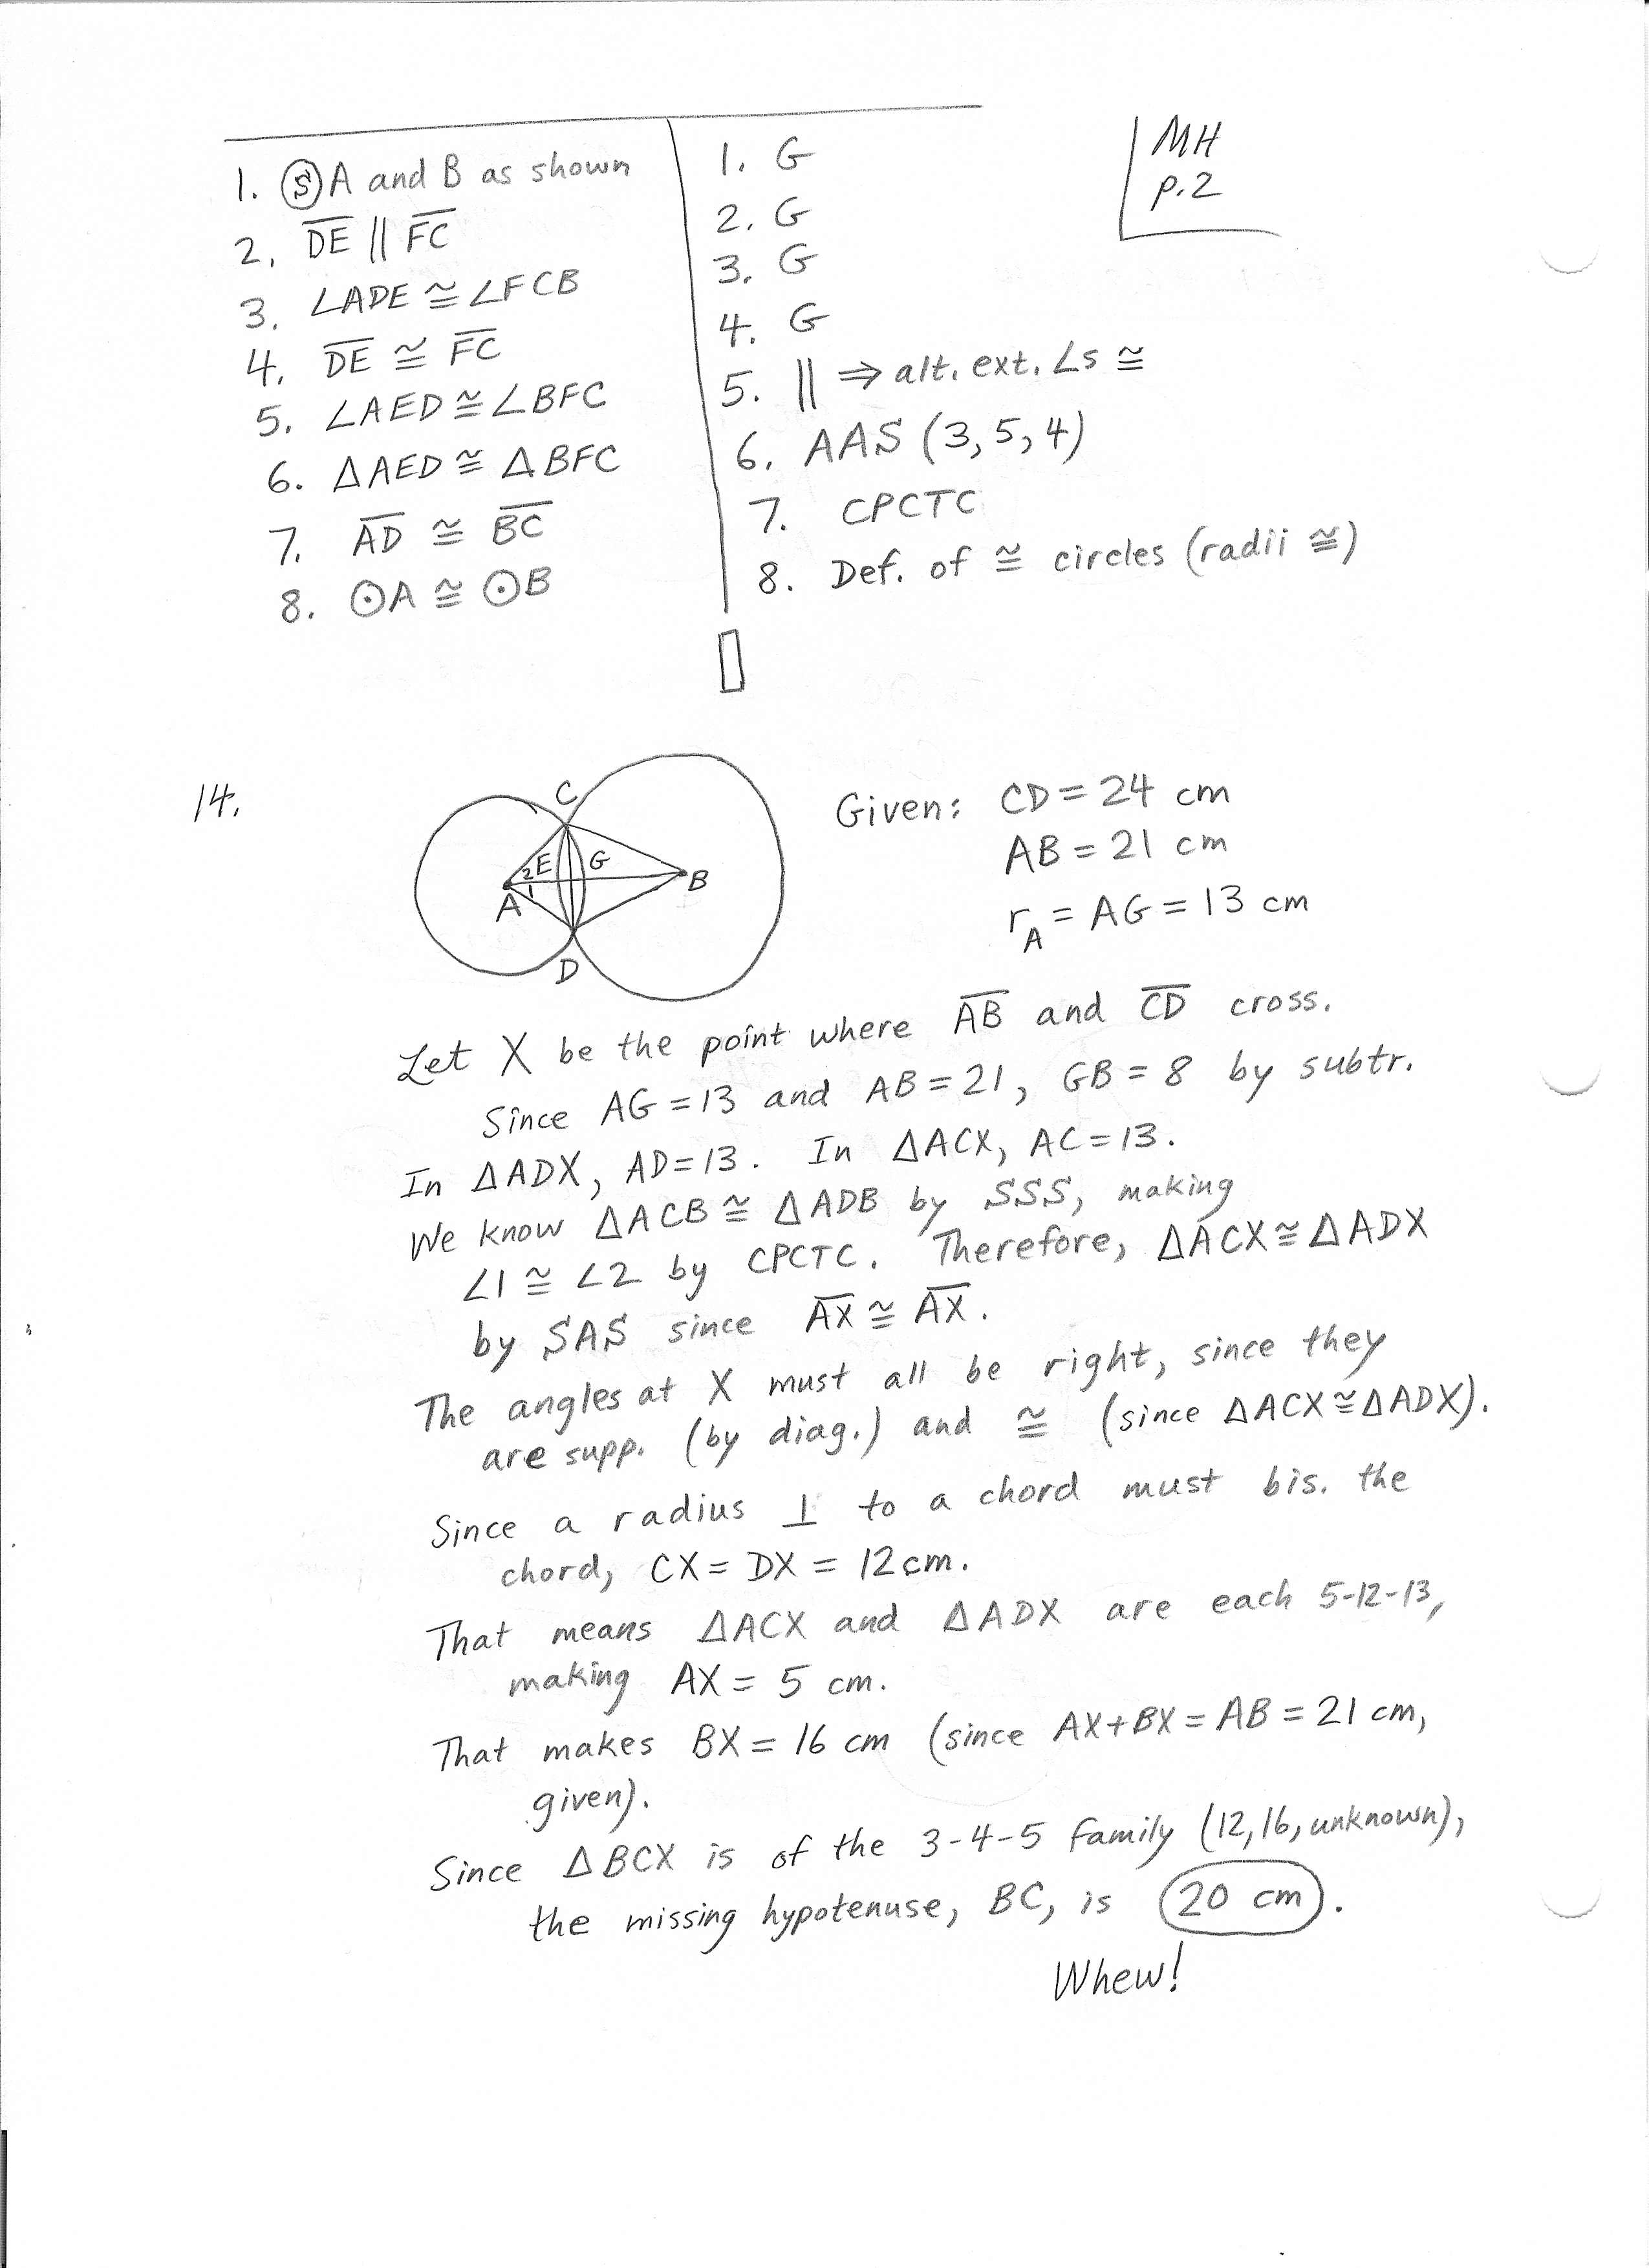 MH
p.2
1. Ⓢ A and B as shown 1. G
2. D̅E̅ || F̅C̅ 2. G
3. ∠ADE ≅ ∠FCB 3. G
4. D̅E̅ ≅ F̅C̅ 4. G
5. ∠AED ≅ ∠BFC 5. || ⇒ alt. ext. ∠s ≅
6. △AED ≅ △BFC 6. AAS (3, 5, 4)
7. A̅D̅ ≅ B̅C̅ 7. CPCTC
8. ⊙A ≅ ⊙B 8. Def. of ≅ circles (radii ≅)
14.
C
2 E G
A 1 B
D
Given: CD = 24 cm
AB = 21 cm
r_A = AG = 13 cm
Let X be the point where A̅B̅ and C̅D̅ cross.
Since AG = 13 and AB = 21, GB = 8 by subtr.
In △ADX, AD = 13. In △ACX, AC = 13.
We know △ACB ≅ △ADB by SSS, making
∠1 ≅ ∠2 by CPCTC. Therefore, △ACX ≅ △ADX
by SAS since A̅X̅ ≅ A̅X̅.
The angles at X must all be right, since they
are supp. (by diag.) and ≅ (since △ACX ≅ △ADX).
Since a radius ⊥ to a chord must bis. the
chord, CX = DX = 12 cm.
That means △ACX and △ADX are each 5-12-13,
making AX = 5 cm.
That makes BX = 16 cm (since AX + BX = AB = 21 cm,
given).
Since △BCX is of the 3-4-5 family (12, 16, unknown),
the missing hypotenuse, BC, is 20 cm.
Whew!